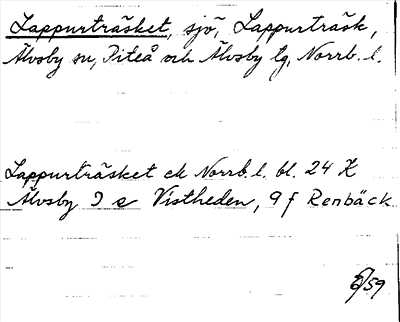 Lappurträsket, sjö, Lappurträsk,
Älvsby sn, Piteå och Älvsby tg, Norrb. l.
Lappurträsket ek Norrb. l. bl. 24 K
Älvsby 9 e Vistheden, 9 f Renbäck
59